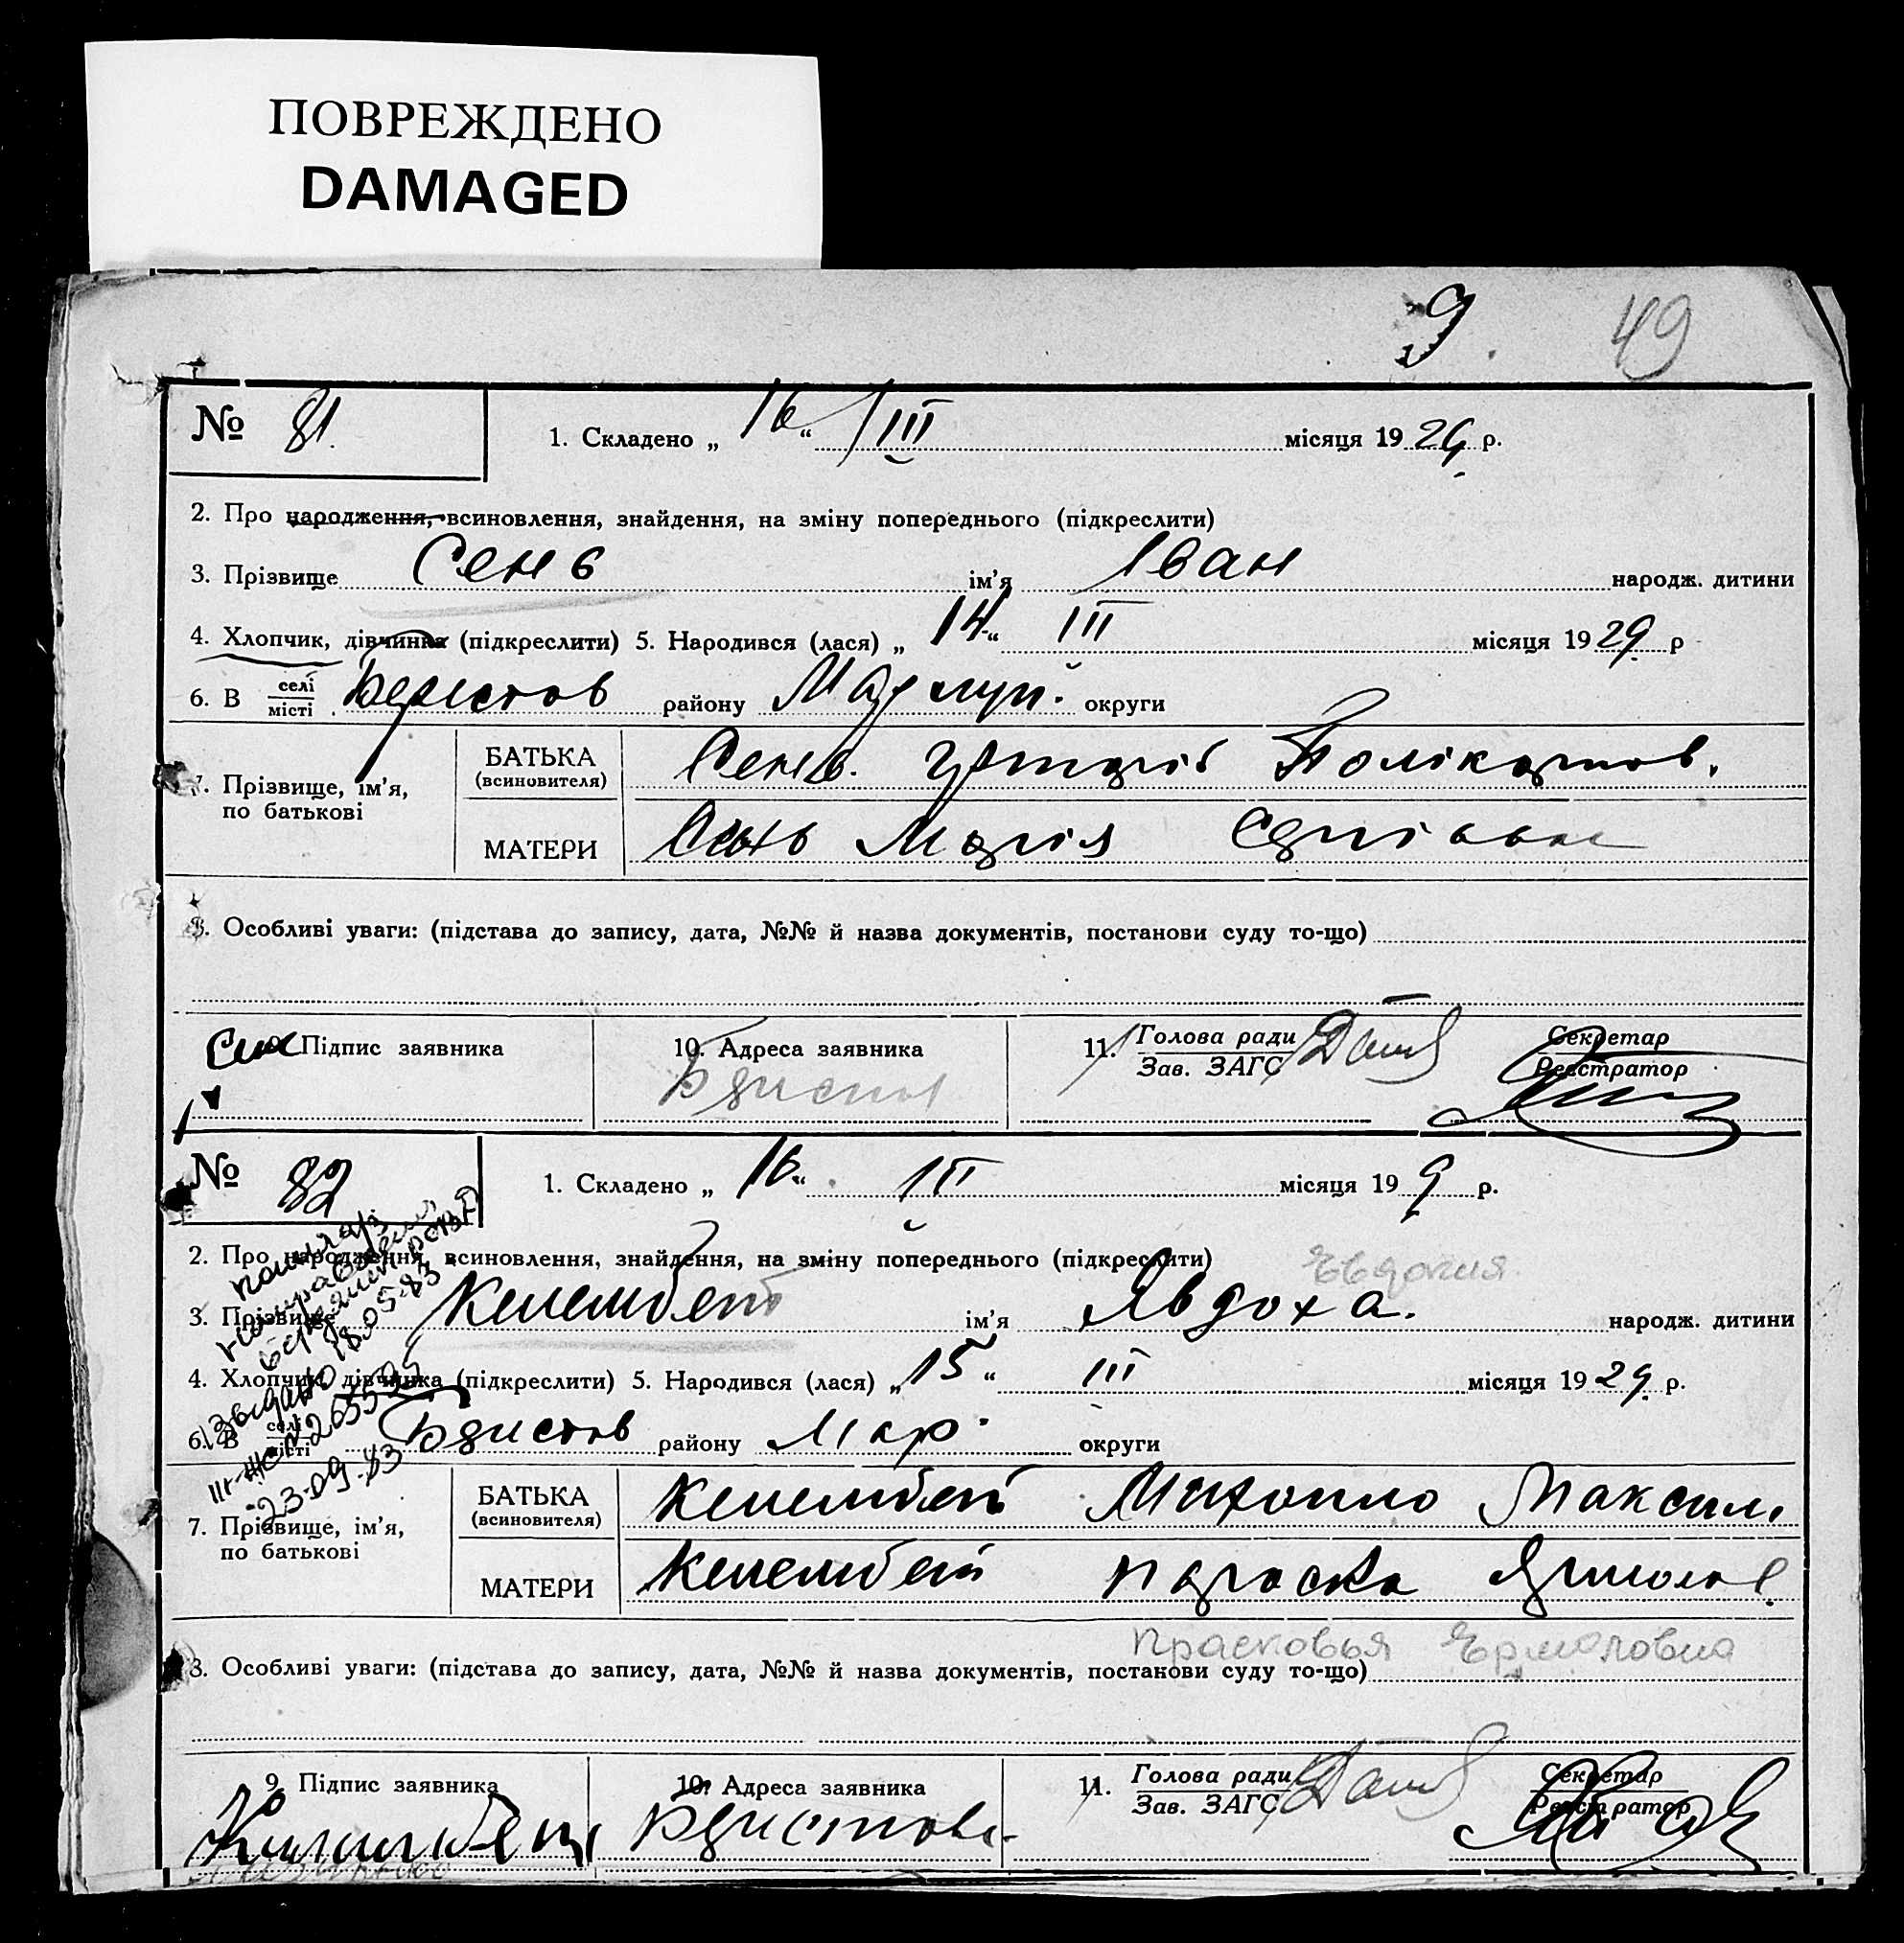 ПОВРЕЖДЕНО
DAMAGED
9. 49
№ 81. 1. Складено „ 16 “ III місяця 19 29 р.
2. Про народження, всиновлення, знайдення, на зміну попереднього (підкреслити)
3. Прізвище Сень ім’я Іван народж. дитини
4. Хлопчик, дівчинка (підкреслити) 5. Народився (лася) „ 14 “ III місяця 19 29 р
6. В селі місті Берестов району Маріуп. округи
7. Прізвище, ім’я, по батькові
БАТЬКА (всиновителя) Сень. Григорій Полікарпов.
МАТЕРИ Сень Марія Сергіївна
8. Особливі уваги: (підстава до запису, дата, №№ й назва документів, постанови суду то-що)
9. Підпис заявника 10. Адреса заявника 11. Голова ради Зав. ЗАГС Секретар Реєстратор
Сень
№ 82 1. Складено „ 16 “ III місяця 19 9 р.
2. Про народження, всиновлення, знайдення, на зміну попереднього (підкреслити)
Евдокия
3. Прізвище Келембет ім’я Явдоха. народж. дитини
4. Хлопчик, дівчинка (підкреслити) 5. Народився (лася) „ 15 “ III місяця 19 29 р.
6. В селі місті Берестов району Мар. округи
18.05.83
23.09.83
7. Прізвище, ім’я, по батькові
БАТЬКА (всиновителя) Келембет Михайло Максим.
МАТЕРИ Келембет Параска Ярмол
Прасковья Ермоловна
8. Особливі уваги: (підстава до запису, дата, №№ й назва документів, постанови суду то-що)
9. Підпис заявника 10. Адреса заявника 11. Голова ради Зав. ЗАГС Секретар Реєстратор
Берестове